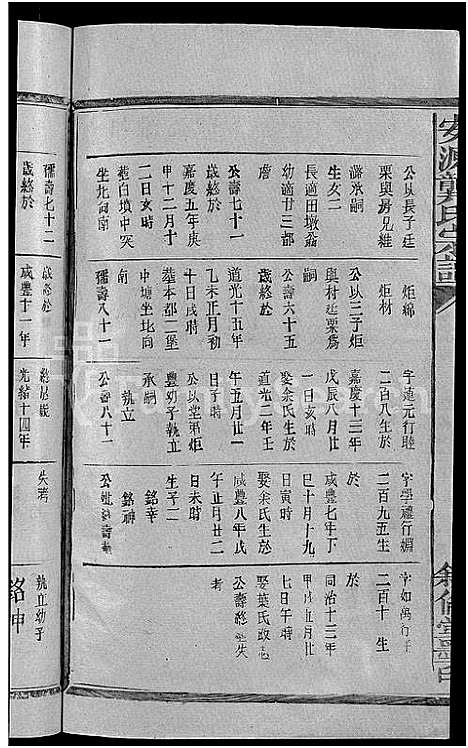 公以長子廷
栗與房兄維
承嗣
生女二
長適田墩翁
幼適廿三都
詹
公壽七十一
歲終於
嘉慶五年庚
申十二月十
二日亥時
葬白墳中突
坐北向南
孺壽七十二
歲終於
炬綿
炬材
公以三子炬
與村廷栗為
嗣
公壽六十五
歲終於
道光十五年
乙未正月初
十日戌時
葬本都二堡
中塘坐北向
南
孺壽八十一
歲終於
咸豐十一年
字蓮元行睦
二百八生於
嘉慶十三年
戊辰八月廿
一日亥時
娶余氏生於
道光二年壬
午五月廿一
日子時
公以堂弟炬
豐幼子執立
承嗣
執立
公壽八十一
光緒十四年
字學禮行
二百九五生
於
咸豐七年丁
巳十月十九
日寅時
娶余氏生於
咸豐八年戊
午正月廿二
日未時
生子二
銘幸
銘神
失考
字如萬行
二百十 生
於
同治十三年
甲戌五月廿
七日午時
娶葉氏
公壽
考
執立幼子
銘神